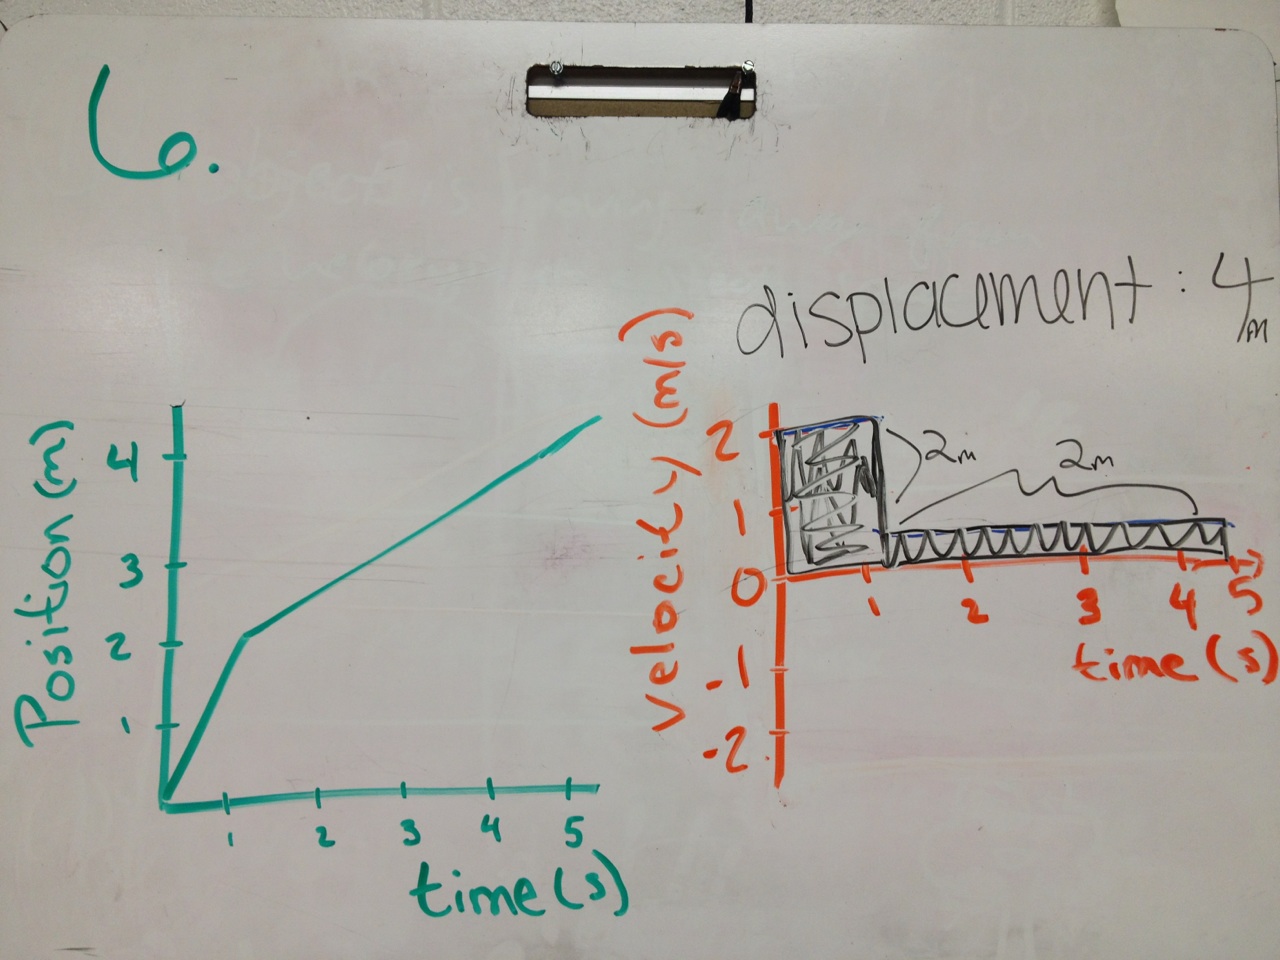 6.
displacement : 4m
Position (m)
4
3
2
1
1 2 3 4 5
time (s)
velocity (m/s)
2
1
0
-1
-2
2m
2m
1 2 3 4 5
time (s)